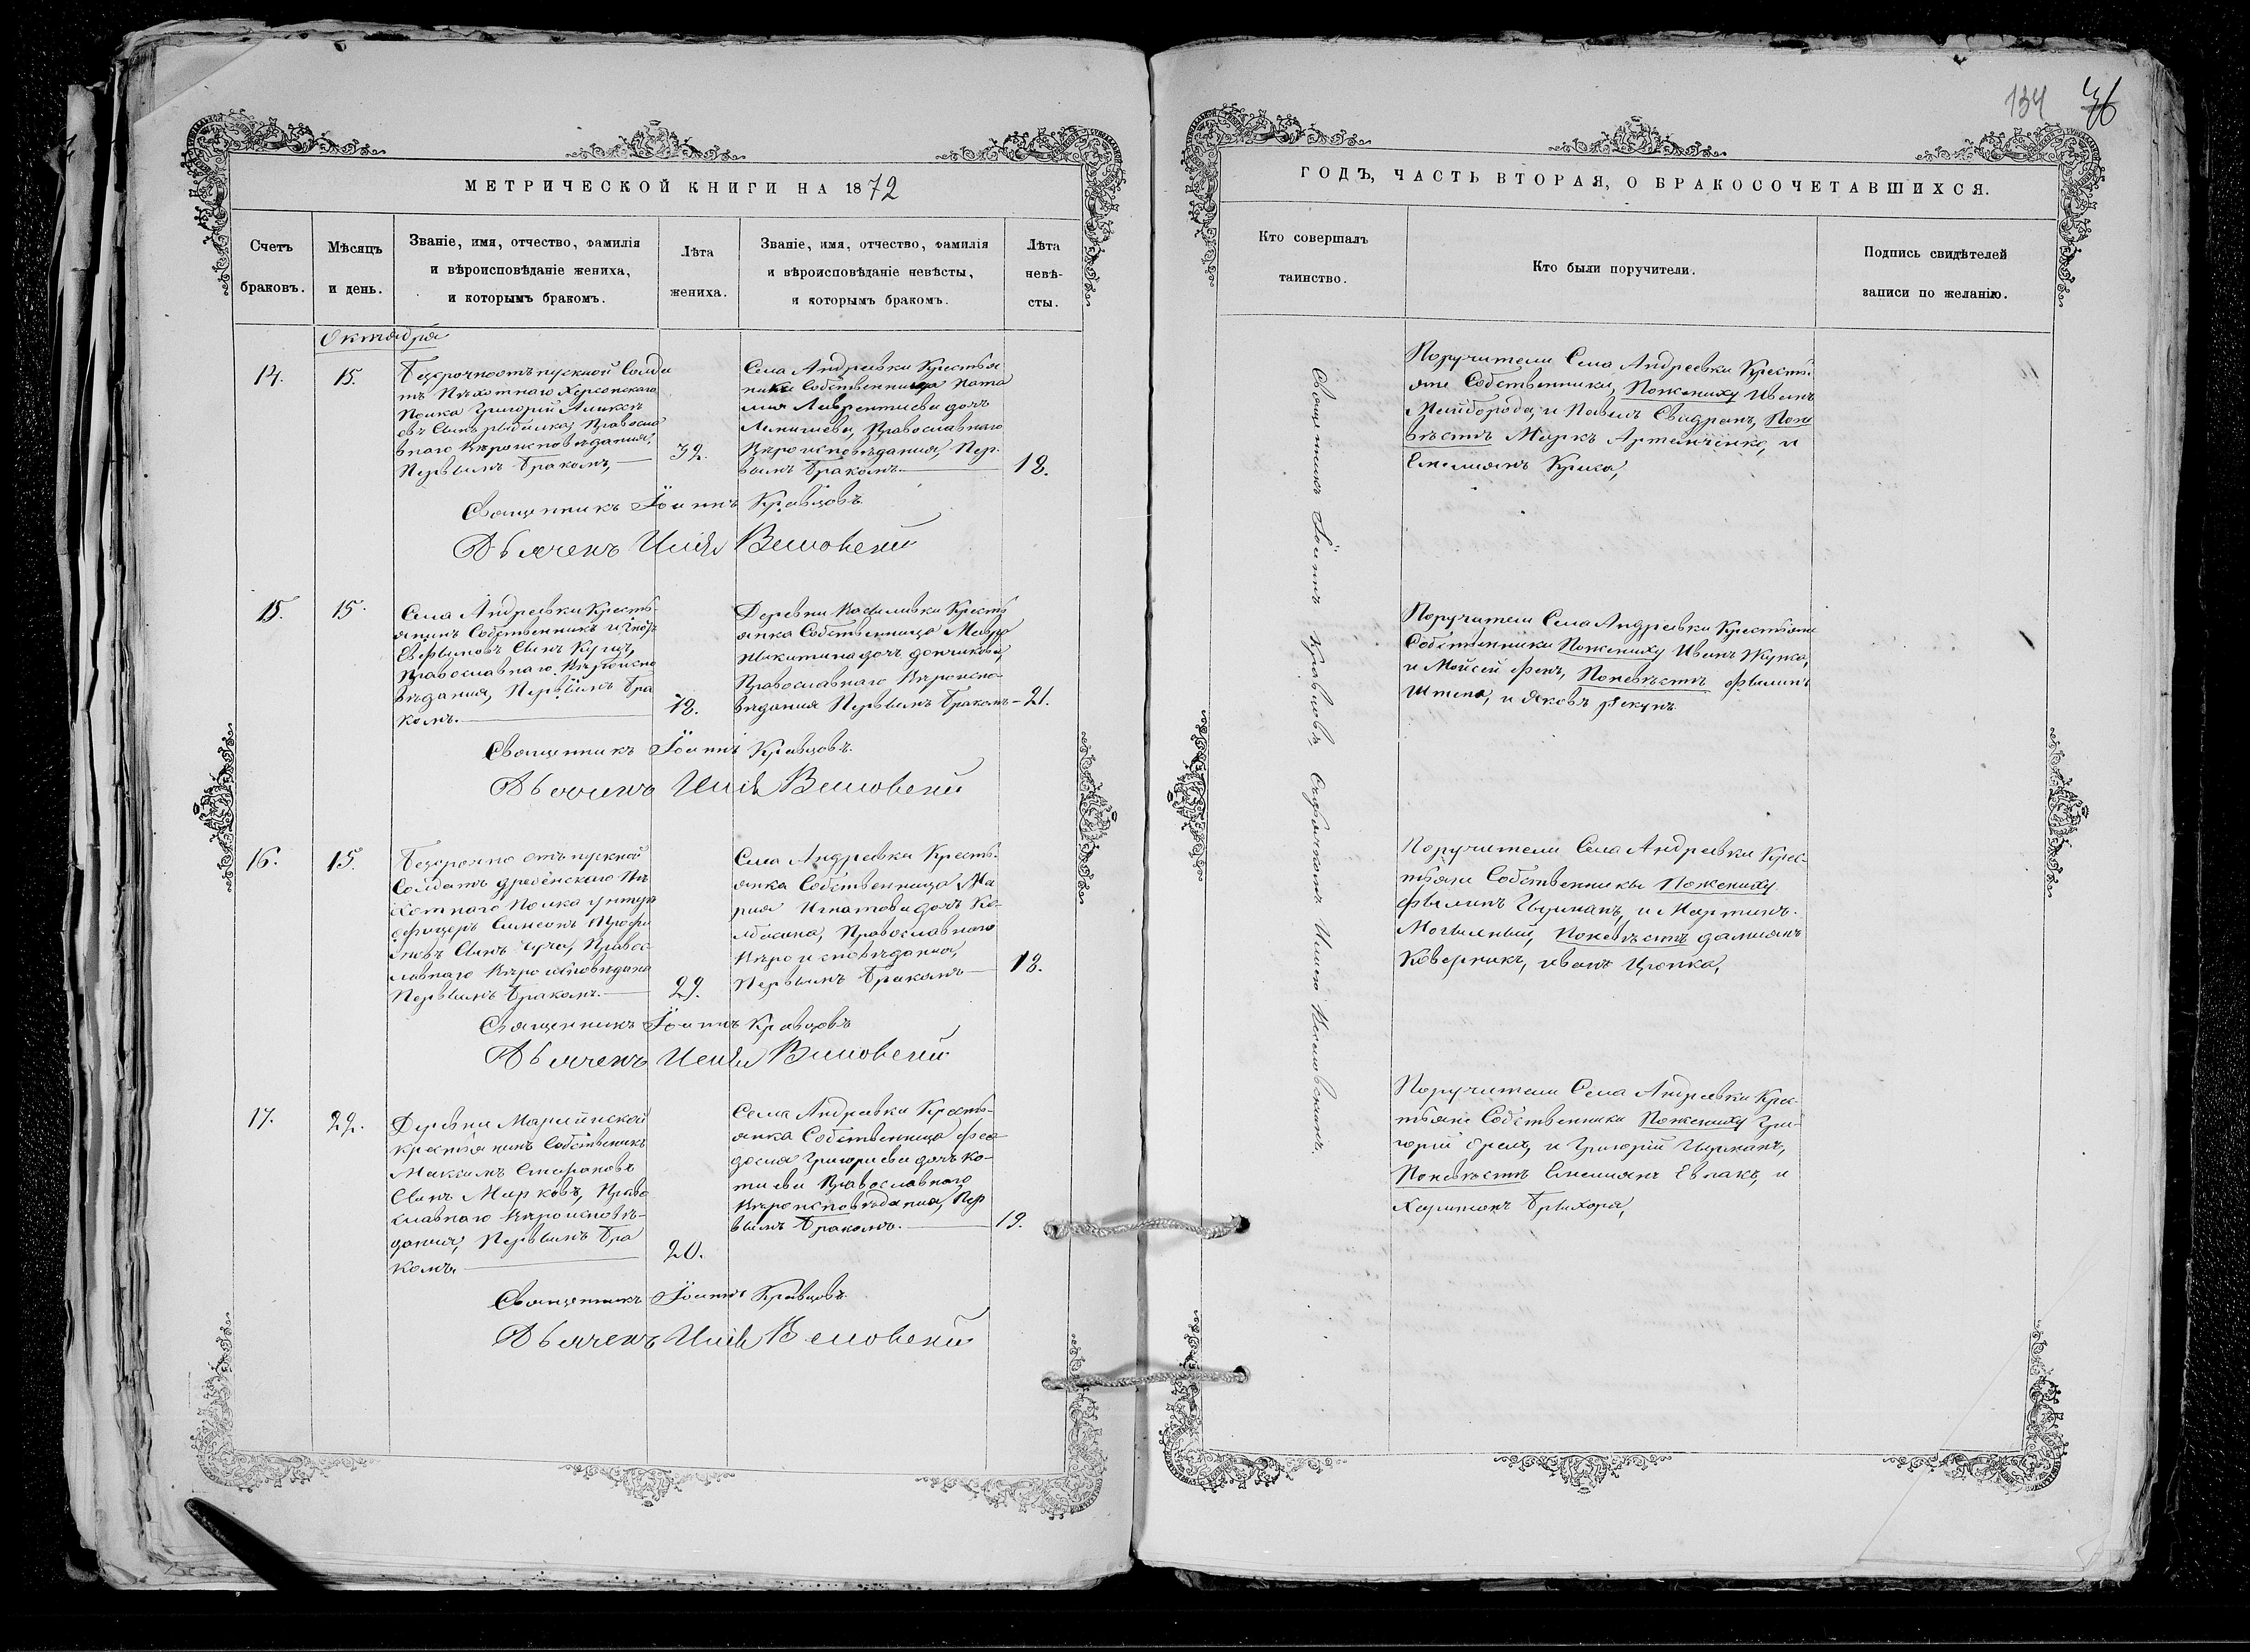 МЕТРИЧЕСКОЙ КНИГИ НА 1872
Счетъ
браковъ.
Мѣсяцъ
и день.
Званіе, имя, отчество, фамилія
и вѣроисповѣданіе жениха,
и которымъ бракомъ.
Лѣта
жениха.
Званіе, имя, отчество, фамилія
и вѣроисповѣданіе невѣсты,
и которымъ бракомъ.
Лѣта
невѣ-
сты.
Октября
14.
15.
Безсрочноотъпускной Солда
тъ Пѣхотнаго Херсонскаго
Полка Григорій Алексѣ
овъ Сынъ Православ
внаго Вѣроисповѣданія,
Первымъ бракомъ,
32.
Села Андреевки Крестья
нина Собственница Ната
лия Лаврентиева дочь
Православнаго
Вѣроисповѣданія, Пер-
вымъ бракомъ.
18.
Священникъ Іоаннъ Кравцовъ
Дьячекъ
15.
15.
Села Андреевки Кресть-
янинъ Собственникъ
Евфимовъ Сынъ Куцъ,
Православнаго Вѣроиспо
вѣдания, Первымъ бра
комъ.
18.
Деревни Васильевки Кресть
янка Собственница Мавра
Никитина дочь
Православнаго Вѣроиспо
вѣдания Первымъ бракомъ
21.
Священникъ Іоаннъ Кравцовъ.
Дьячекъ
16.
15.
Безсрочно отъпускной
Солдатъ Пѣ
хотнаго Полка унтеръ
офицеръ Симеонъ Трофи
мовъ Сынъ Правос-
лавнаго Вѣроисповѣдания
Первымъ бракомъ.
29.
Села Андреевки Кресть-
янка Собственница Ма
рия Игнатова дочь Ко-
Православнаго
Вѣроисповѣдания,
Первымъ бракомъ
18.
Священникъ Іоаннъ Кравцовъ
Дьячекъ
17.
22.
Деревни Марийнской
крестьянинъ Собственикъ
Максимъ Стефановъ
Сынъ Марковъ, Право
славнаго Вѣроисповѣ-
дания, Первымъ бра
комъ
20.
Села Андреевки Кресть-
янка Собственница Фео-
досия Григориева дочь Ко-
Православнаго
Вѣроисповѣдания, Пер
вымъ бракомъ.
19.
Священникъ Іоаннъ Кравцовъ.
Дьячекъ
134
ГОДЪ, ЧАСТЬ ВТОРАЯ, О БРАКОСОЧЕТАВШИХСЯ.
Кто совершалъ
таинство.
Кто были поручители.
Подпись свидѣтелей
записи по желанію.
Священникъ Іоаннъ Кравцовъ
Поручители Села Андреевки Кресть-
яне Собственники, Пожениху Иванъ
Майборода, и Павелъ Свидранъ, Поне
вѣстѣ Маркъ Артемченко, и
Емелиянъ Крика,
Поручители Села Андреевки Крестьяне
Собственники Пожениху Иванъ Жупка,
и Мойсей Поневѣстѣ Филипъ
Штепа, и Яковъ
Поручители Села Андреевки Крес-
тьяне Собственники Пожениху
Филипъ Цурканъ, и Мартинъ
Могильный, Поневѣстѣ Дамиянъ
Коверникъ, Иванъ Цюпка,
Поручители Села Андреевки Крес-
тьяне Собственники Пожениху Гри-
горий и Григорий Цурканъ,
Поневѣстѣ Емелиянъ Евлакъ, и
Харитонъ